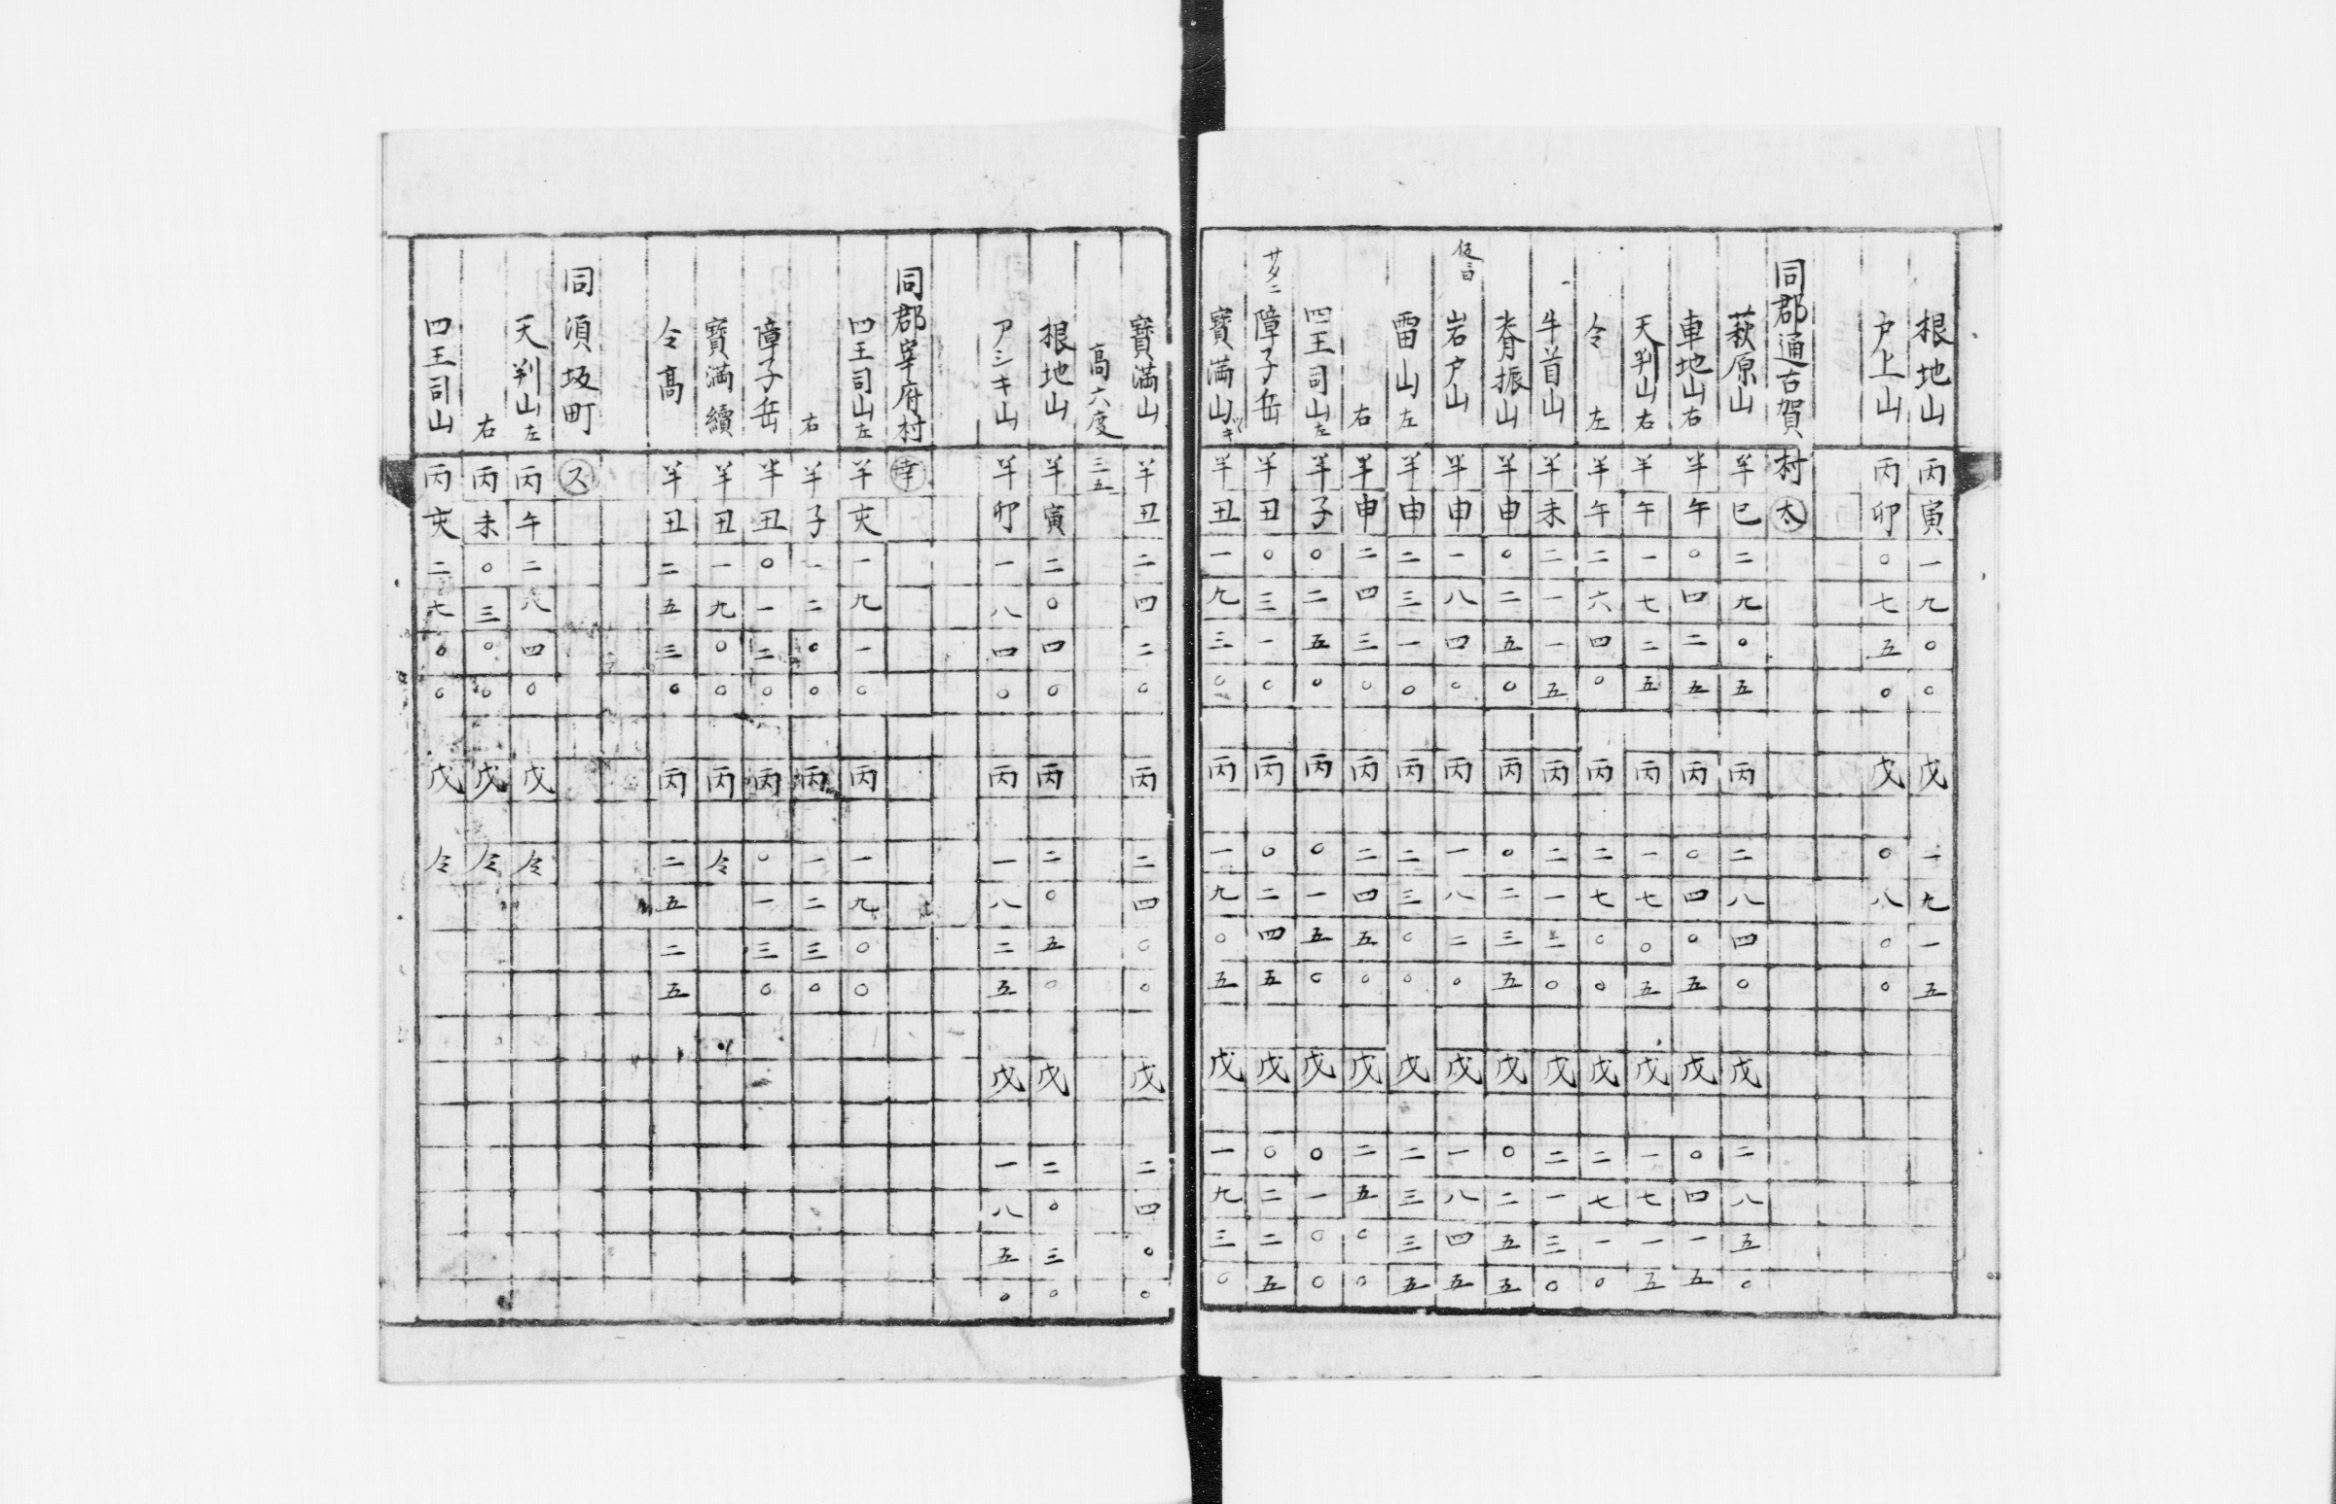 根地山 丙寅一九〇〇 戊一九一五
戸上山 丙卯〇七五〇 戊〇八〇〇
同郡通古賀村 太
萩原山 半巳二九〇五 丙二八四〇 戊二八五〇
車地山右 半午〇四二五 丙〇四〇五 戊〇四一五
天判山右 半午一七二五 丙一七〇五 戊一七一五
令 左 半午二六四〇 丙二七〇〇 戊二七一〇
牛首山 半未二一一五 丙二一二〇 戊二一三〇
脊振山 半申〇二五〇 丙〇二三五 戊〇二五五
岩戸山 半申一八四〇 丙一八二〇 戊一八四五
雷山左 半申二三一〇 丙二三〇〇 戊二三三五
右 半申二四三〇 丙二四五〇 戊二五〇〇
四王司山左 半子〇二五〇 丙〇一五〇 戊〇一〇〇
サタニ 障子岳 半丑〇三一〇 丙〇二四五 戊〇二二五
寶満山 半丑一九三〇 丙一九〇五 戊一九三〇
寶満山 半丑二四二〇 丙二四〇〇 戊二四〇〇
高六度 三五
根地山 半寅二〇四〇 丙二〇五〇 戊二〇三〇
アシキ山 半卯一八四〇 丙一八二五 戊一八五〇
同郡宰府村 幸
四王司山左 半亥一九一〇 丙一九〇〇
右 半子一二〇〇 丙一二三〇
障子岳 半丑〇一二〇 丙〇一三〇
寶満續 半丑一九〇〇 丙令
令高 半丑二五三〇 丙二五二五
同須坂町 ス
天判山左 丙午二八四〇 戊令
右 丙未〇三〇〇 戊令
四王司山 丙亥二六〇〇 戊令